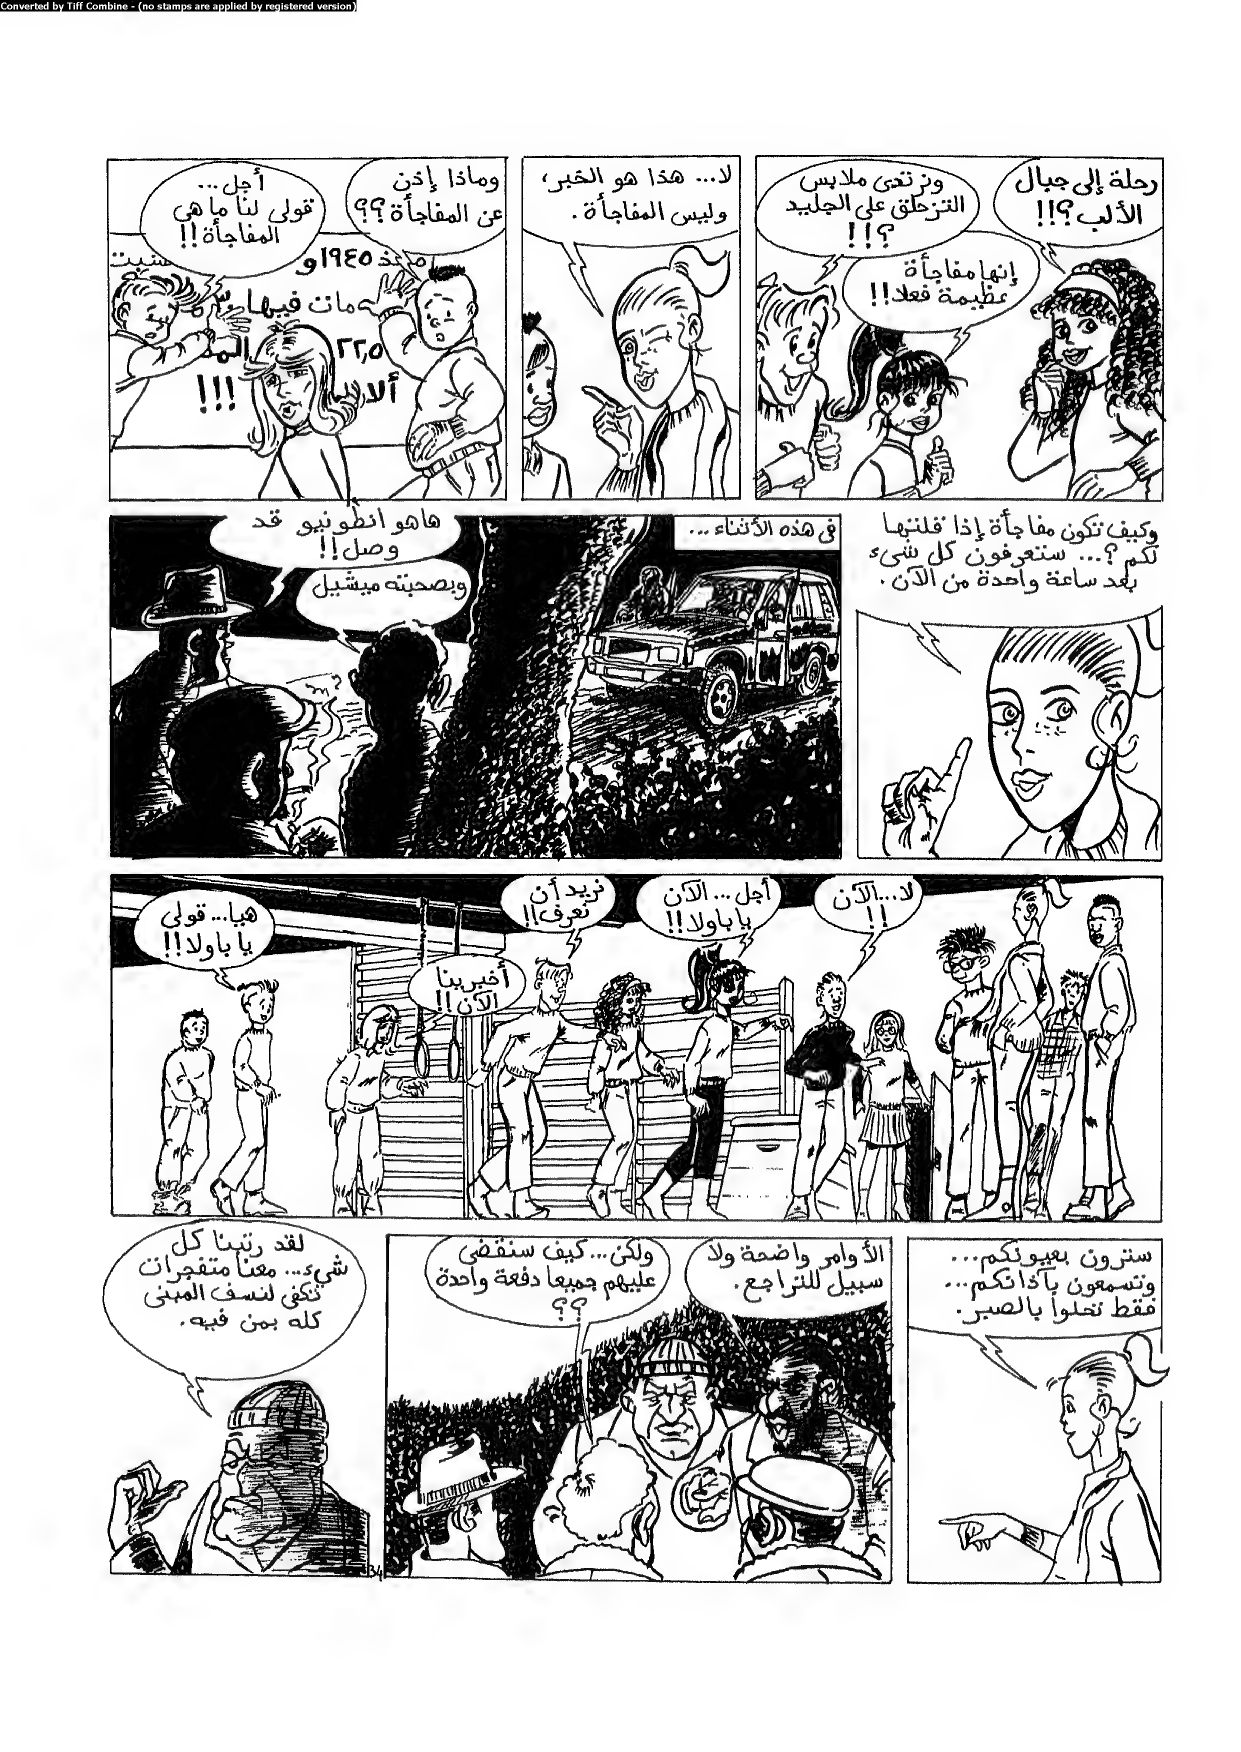 Converted by Tiff Combine - (no stamps are applied by registered version)
رحلة إلى جبال
الألب؟!!
ونرتدى ملابس
التزحلق على الجليد
؟!!
إنها مفاجأة
عظيمة فعلا!!
لا... هذا هو الخبر،
وليس المفاجأة.
وماذا إذن
عن المفاجأة؟؟
أجل...
قولى لنا ما هى
المفاجأة!!
١٩٤٥ و
مات فيها
٢٢,٥
!!!
وكيف تكون مفاجأة إذا قلتها
لكم؟... ستعرفون كل شىء
بعد ساعة واحدة من الآن.
فى هذه الأثناء...
هاهو انطونيو قد
وصل!!
وبصحبته ميشيل
لا...الآن
!!
أجل... الآن
يا باولا!!
نريد أن
نعرف!!
أخبرينا
الآن!!
هيا... قولى
يا باولا!!
سترون بعيونكم...
وتسمعون بآذانكم...
فقط تحلوا بالصبر.
الأوامر واضحة ولا
سبيل للتراجع.
ولكن... كيف سنقضى
عليهم جميعا دفعة واحدة
؟؟
لقد رتبنا كل
شىء... معنا متفجرات
تكفى لنسف المبنى
كله بمن فيه.
34